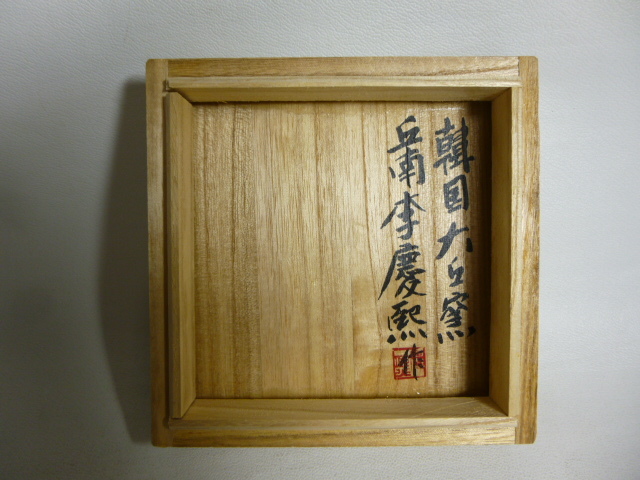 韓国大丘窯
丘南李慶熙作